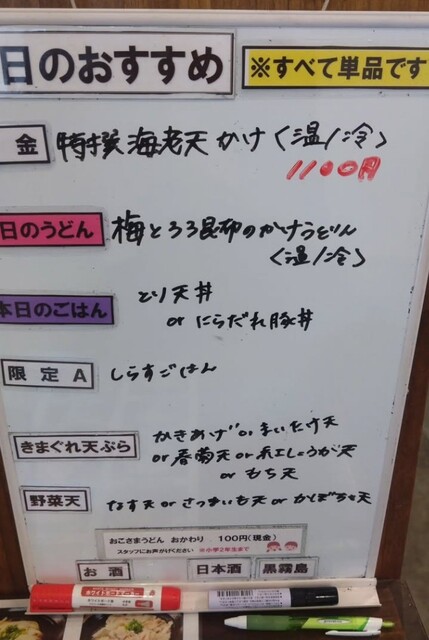 日のおすすめ ※すべて単品です
金 特撰海老天かけ〈温/冷〉
1100円
日のうどん 梅とろろ昆布のかけうどん
〈温/冷〉
本日のごはん とり天丼
or にらだれ豚丼
限定A しらすごはん
きまぐれ天ぷら かきあげ or まいたけ天
or 春菊天 or 紅しょうが天
or もち天
野菜天 なす天 or さつまいも天 or かぼちゃ天
おこさまうどん おかわり 100円(現金)
スタッフにお声がけください ※小学2年生まで
お酒 日本酒 黒霧島